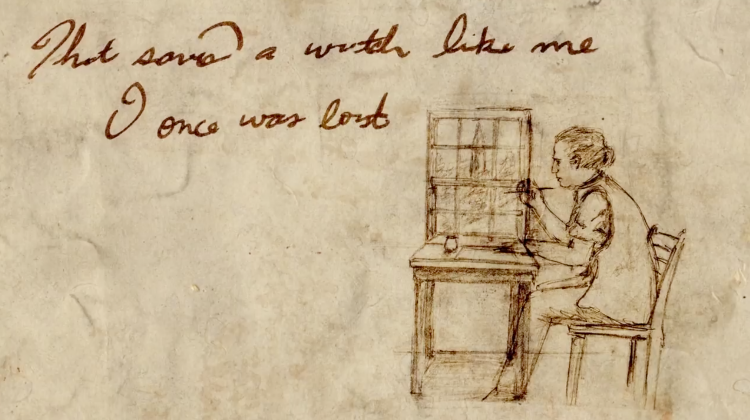 That saved a wretch like me
I once was lost